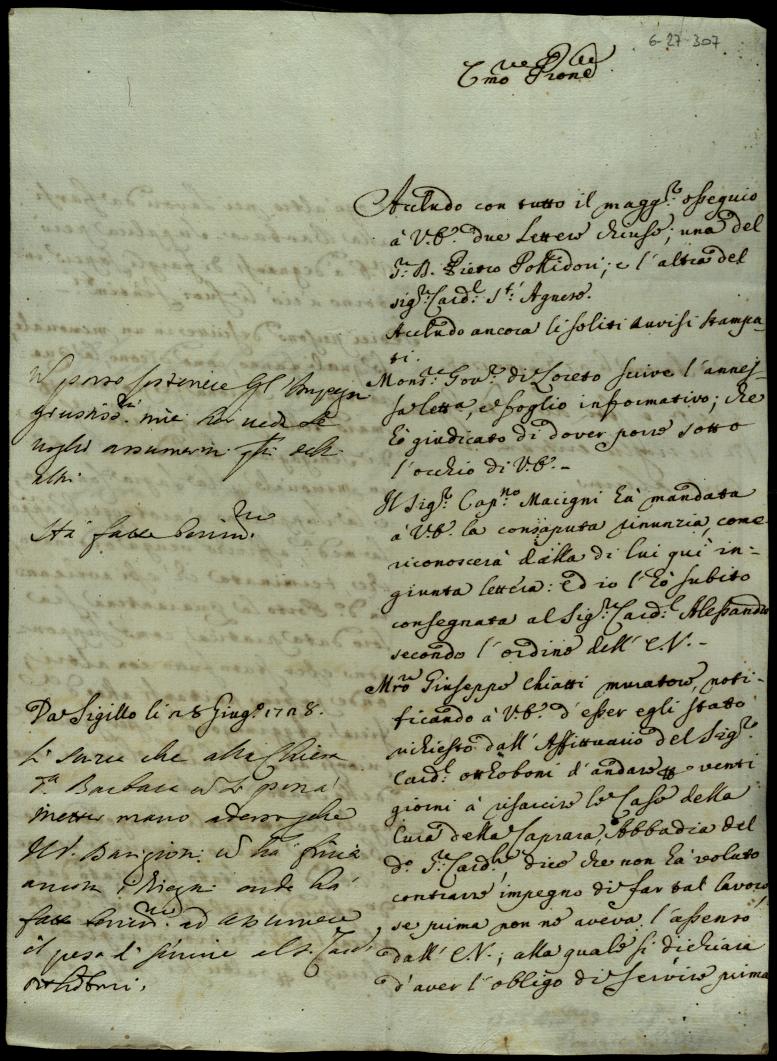 6-27-307
Em.mo P.rone
Accludo con tutto il magg.re osseguio
à V.E. due Lettere chiuse; una del
P. B. Pietro Pollidori, e l'altra del
sig.r Card.l S.t' Agnese.
Accludo ancora li soliti Avvisi stampa-
ti.
Mons.r Gov.re di Loreto scrive l'annes-
sa letta, e foglio informativo; che
hò giudicato di dover porre sotto
l'occhio di V.E.-
Il Sig.r Cap.no Macigni hà mandata
à V.E. la consaputa rinunzia, come
riconoscerà dalla di lui quì in-
giunta lettera: ed io l'hò subito
consegnata al Sig.r Card.l Alessandro
secondo l'ordine dell'E.V.-
M.ro Giuseppe Chiatti muratore, noti-
ficando à V.E. d'esser egli stato
richiesto dall'Affittuario del Sig.r
Card.l Ottoboni d'andare p venti
giorni à risarcire le Case della
Cura della Caprara, Abbadia del
d.o S.r Card.le, dice che non hà voluto
contrarre impegno di far tal lavoro,
se prima non ne aveva l'assenso
dall'E.V.; alla quale si dichiara
d'aver l'obligo di servire prima
posso sostenere gl'Impegni
giustiss.mi miei
voglio assumerin altri
Stà fatto beniss.mo
Da Sigillo li 28 Giug.o 1728.
Si scrive che alla Chiesa
S.ta Barbara
metter mano adesso, che
Barigioni hà finiti
ancora i disegni onde hà
fatto beniss.mo ad assumere
il peso di servire il S. Card.
Ottoboni.